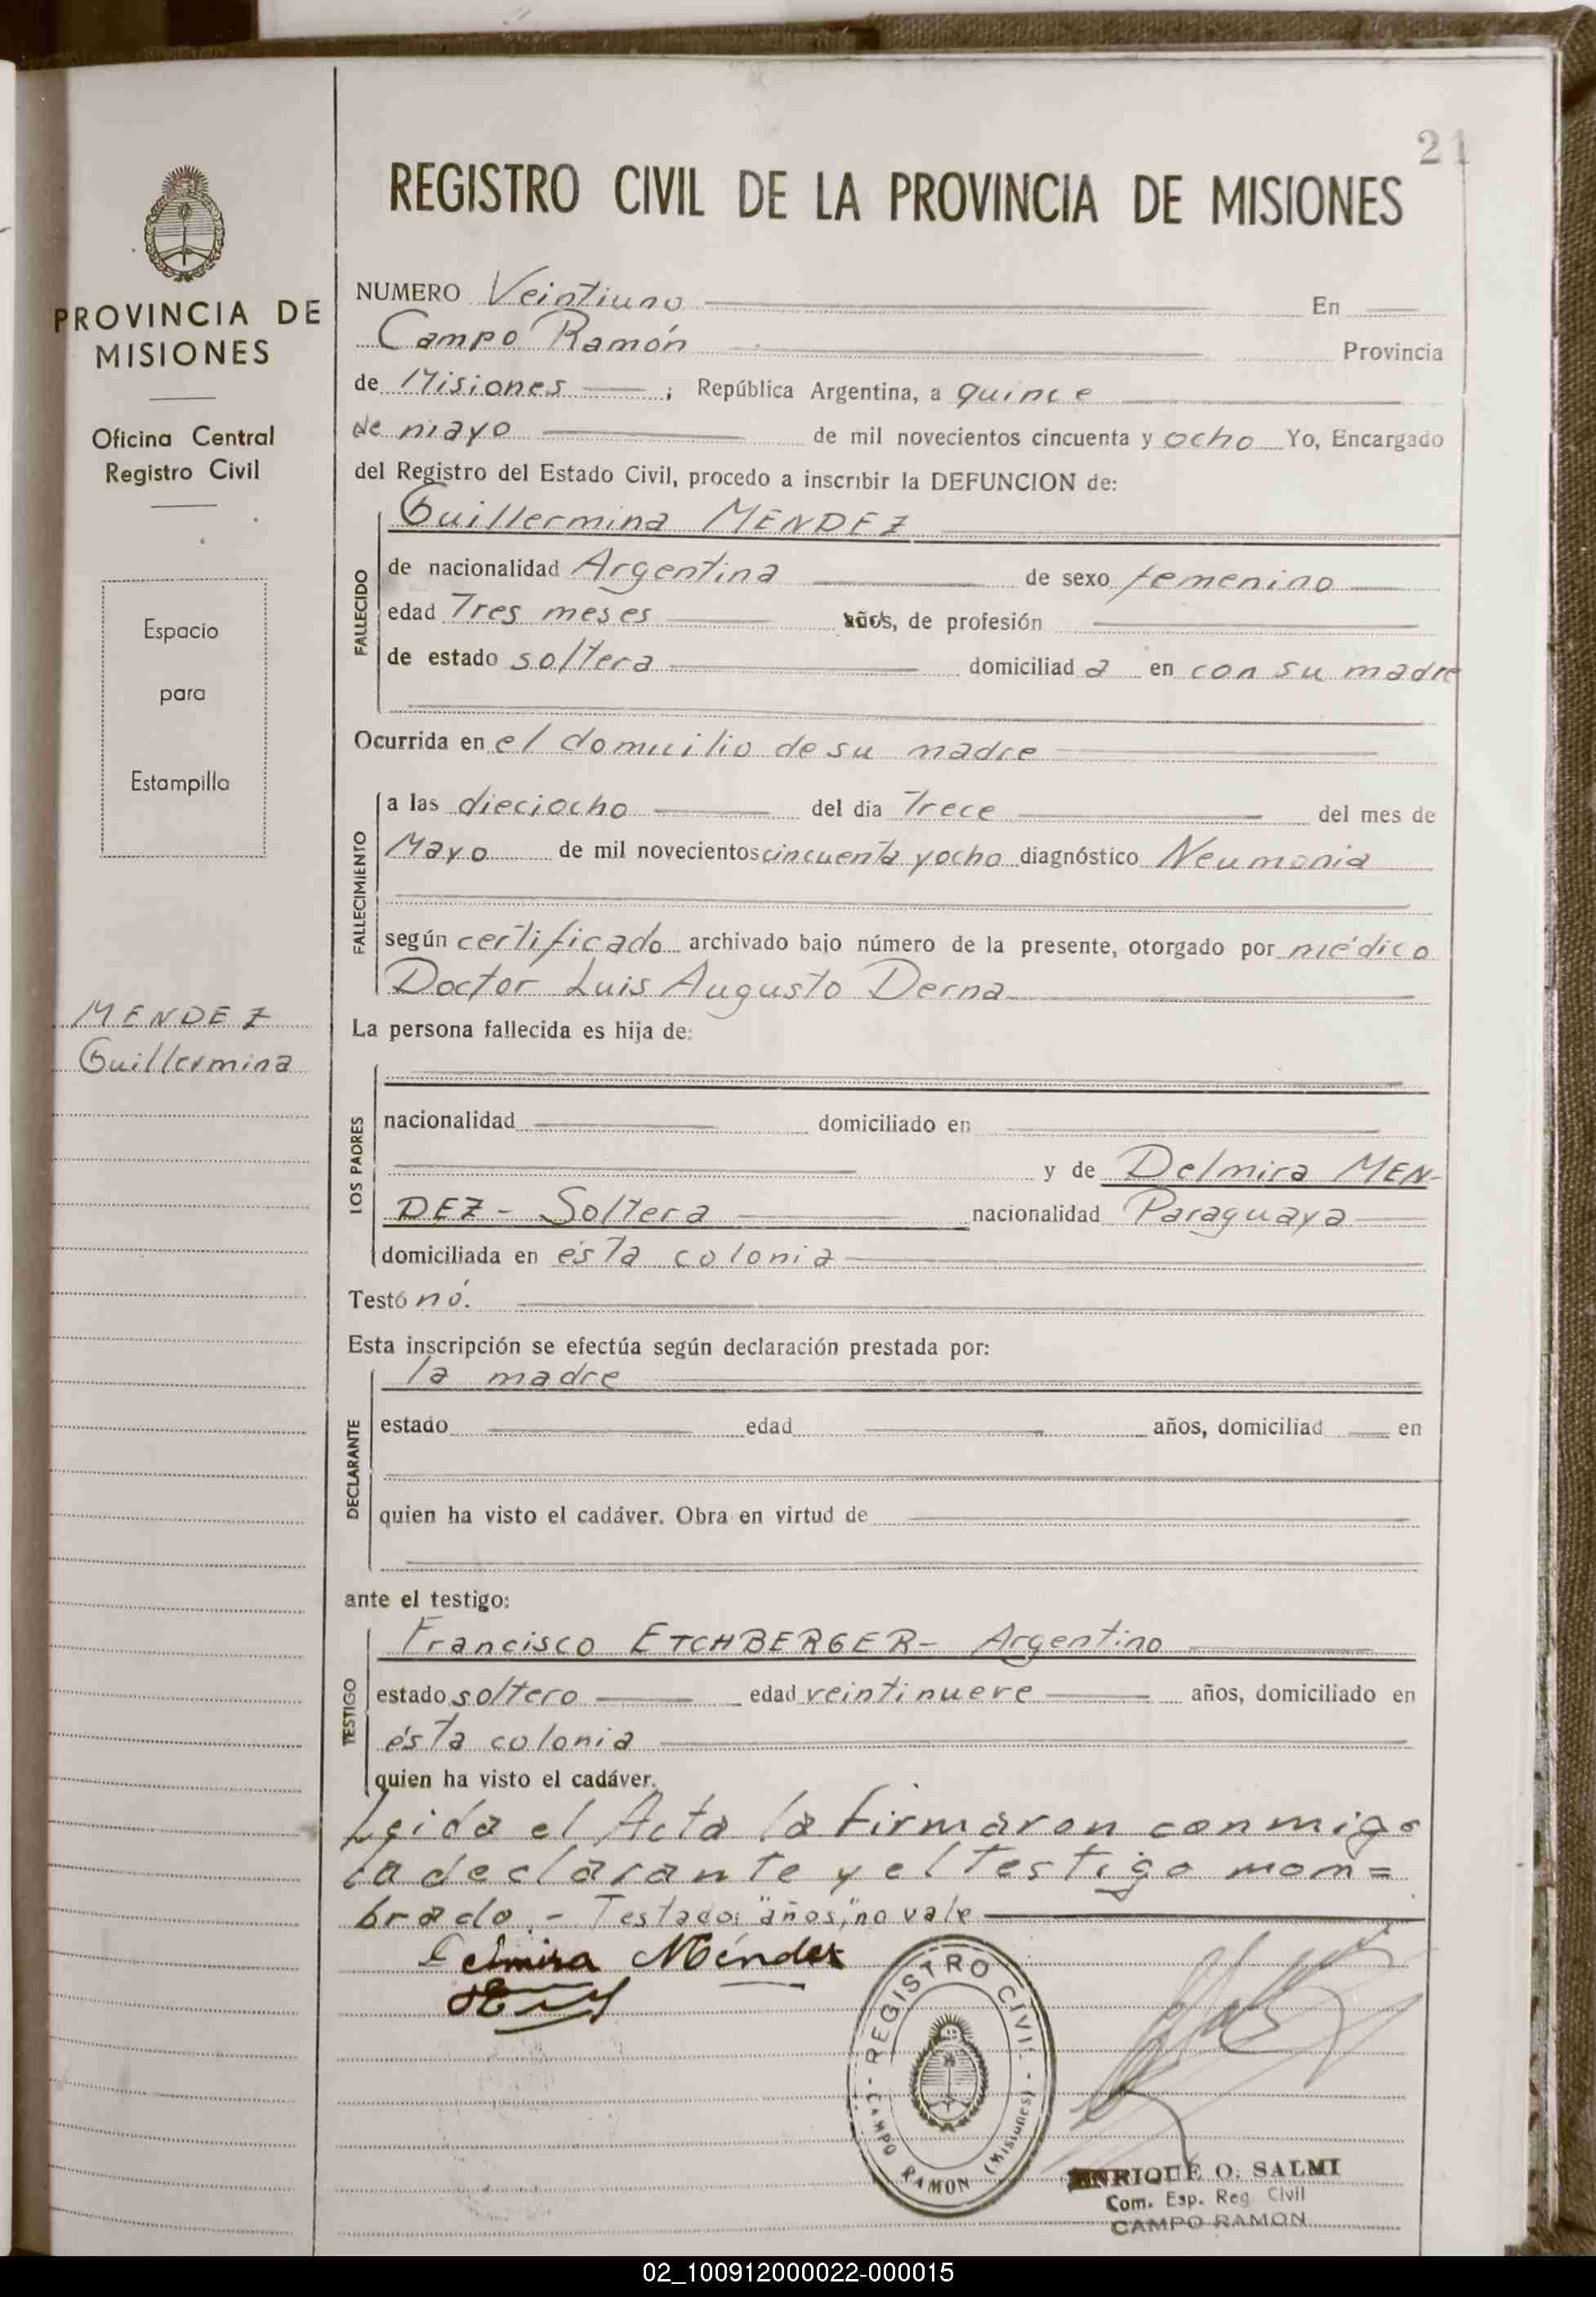 21
REGISTRO CIVIL DE LA PROVINCIA DE MISIONES
PROVINCIA DE
MISIONES
Oficina Central
Registro Civil
Espacio
para
Estampilla
MENDEZ
Guillermina
NUMERO Veintiuno En
Campo Ramón Provincia
de Misiones ; República Argentina, a quince
de mayo de mil novecientos cincuenta y ocho Yo, Encargado
del Registro del Estado Civil, procedo a inscribir la DEFUNCION de:
Guillermina MENDEZ
FALLECIDO
de nacionalidad Argentina de sexo femenino
edad Tres meses años, de profesión
de estado soltera domiciliad a en con su madre
Ocurrida en el domicilio de su madre
FALLECIMIENTO
a las dieciocho del día Trece del mes de
Mayo de mil novecientos cincuenta y ocho diagnóstico Neumonia
según certificado archivado bajo número de la presente, otorgado por médico
Doctor Luis Augusto Derna
La persona fallecida es hija de:
LOS PADRES
nacionalidad domiciliado en
y de Delmira MEN-
DEZ - Soltera nacionalidad Paraguaya
domiciliada en ésta colonia
Testó nó.
Esta inscripción se efectúa según declaración prestada por:
la madre
DECLARANTE
estado edad años, domiciliad en
quien ha visto el cadáver. Obra en virtud de
ante el testigo:
Francisco ETCHBERGER- Argentino
TESTIGO
estado soltero edad veintinueve años, domiciliado en
ésta colonia
quien ha visto el cadáver.
Leida el Acta la firmaron conmigo
la declarante y el testigo mom=
brado.- Testado: "años", no vale
Delmira Méndez
REGISTRO CIVIL
CAMPO RAMON (Misiones)
ENRIQUE O. SALMI
Com. Esp. Reg. Civil
CAMPO RAMON
02_100912000022-000015